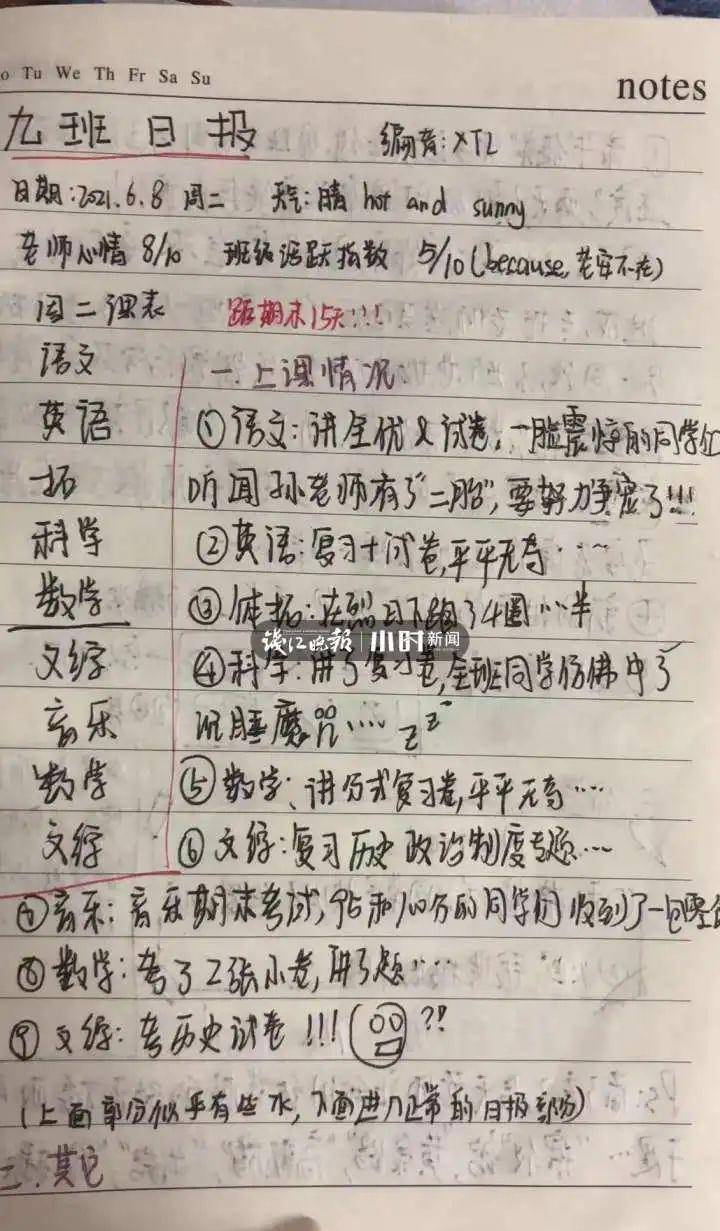 o Tu We Th Fr Sa Su
notes
九班日报 编者:XTL
日期:2021.6.8 周二 天气:晴 hot and sunny
老师心情 8/10 班级活跃指数 5/10(because,老安不在)
周二课表 距期末15天!!!
语文 一.上课情况:
英语 ①语文:讲全优大试卷,一脸震惊的同学们
拓 听闻孙老师有了"二胎",要努力争宠了!!!
科学 ②英语:复习十试卷,平平无奇……
数学 ③体拓:在烈日下跑了4圈…半
钱江晚报 小时新闻
文综 ④科学:讲了复习卷,全班同学仿佛中了
音乐 沉睡魔咒…… zzz
数学 ⑤数学:讲分式复习卷,平平无奇……
文综 ⑥文综:复习历史政治制度专题……
⑦音乐:音乐期末考试,95和100分的同学们收到了一包零食
⑧数学:考了2张小卷,讲了题……
⑨文综:考历史试卷!!! ??
(上面部分似乎有些水,下面进入正常的日报部分)
二.其它